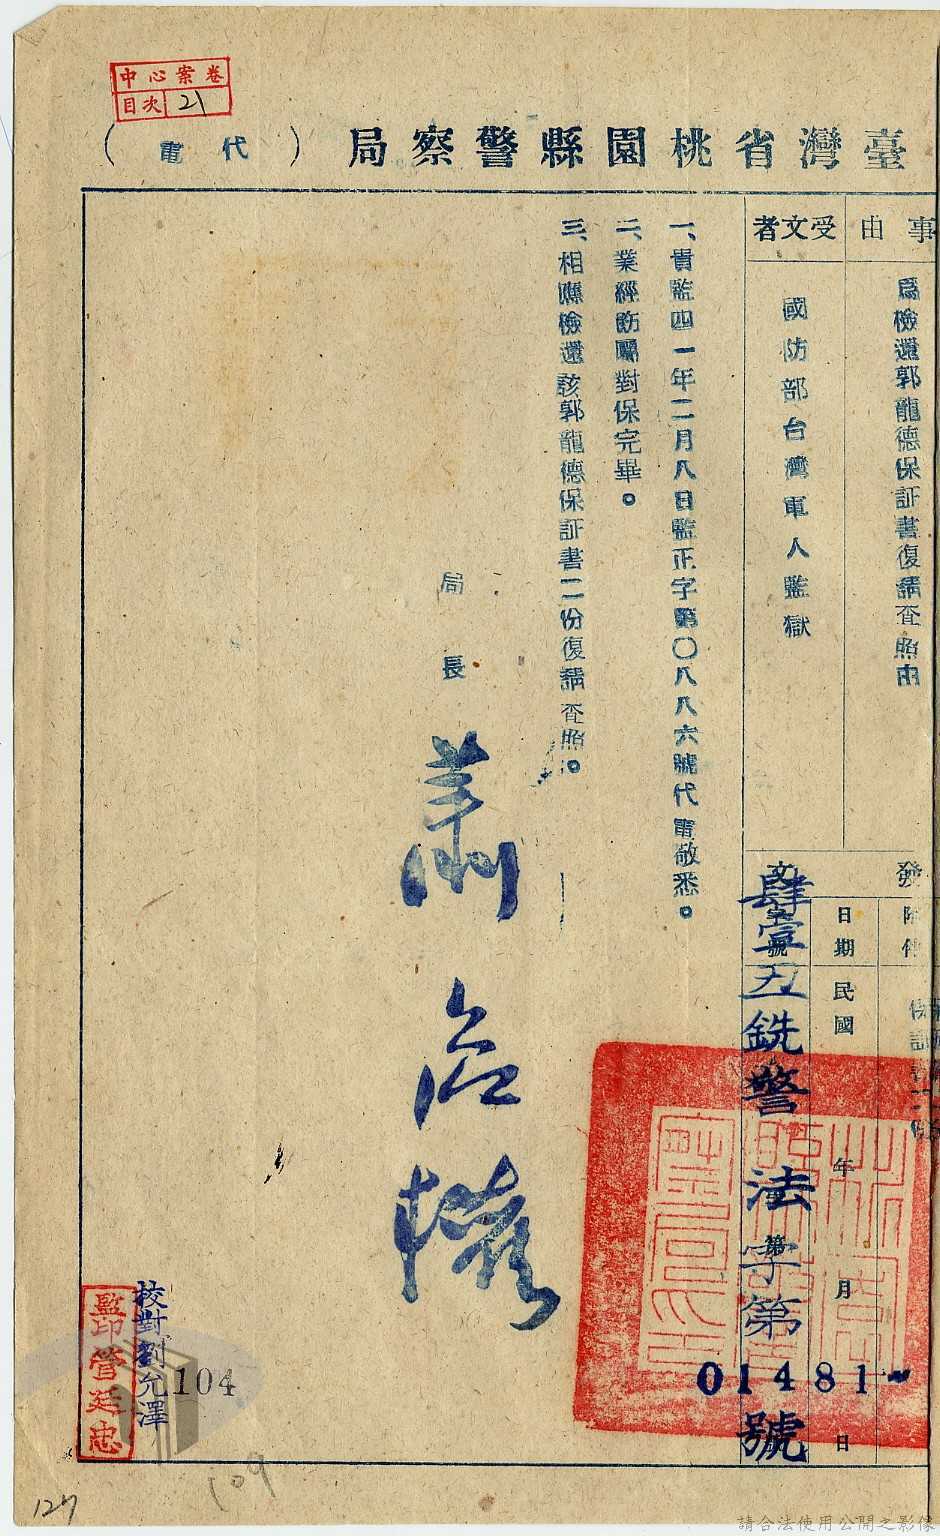 中心案卷
目次 21
臺灣省桃園縣警察局（代電）
事由
為檢還郭龍德保証書復請查照由
受文者
國防部台灣軍人監獄
發文
附件
日期
民國 年 月 日
肆壹丑銑警法字第01481號
一、貴監四一年二月八日監正字第〇八八六號代電敬悉。
二、業經飭屬對保完畢。
三、相應檢還該郭龍德保証書二份復請查照。
局長
校對劉允澤
監印管廷忠
104
109
127
請合法使用公開之影像